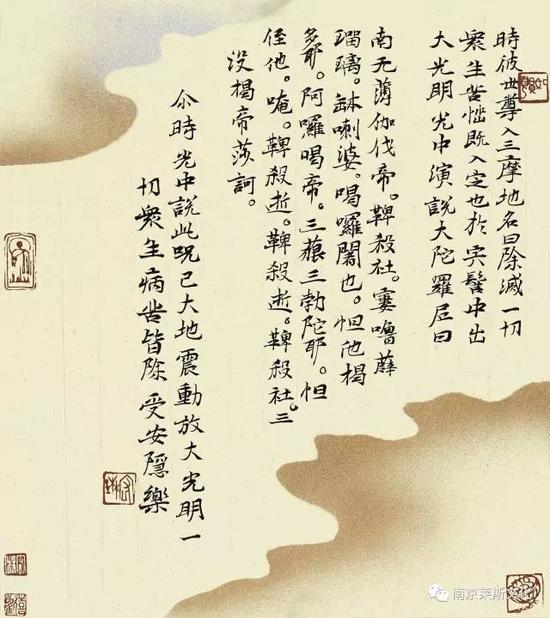 時彼世尊入三摩地名曰除滅一切
衆生苦惱既入定也於宍髻中出
大光明光中演說大陀羅尼曰
南无薄伽伐帝。鞞殺社。窶嚕薜
瑠璃。鉢喇婆。喝囉闍也。怛他揭
多耶。阿囉喝帝。三藐三勃陀耶。怛
侄他。唵。鞞殺逝。鞞殺逝。鞞殺社。三
没揭帝莎訶。
尒時光中說此呪已大地震動放大光明一
切衆生病苦皆除受安隱樂
南京莱斯文化